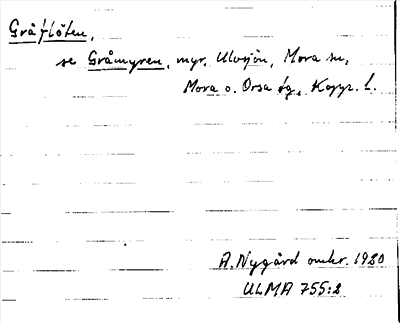 Gråflöten,
se Gråmyren, myr, Ulvsjön, Mora sn,
Mora o. Orsa tg., Kopp. l.
A. Nygård omkr. 1920
ULMA 755:2